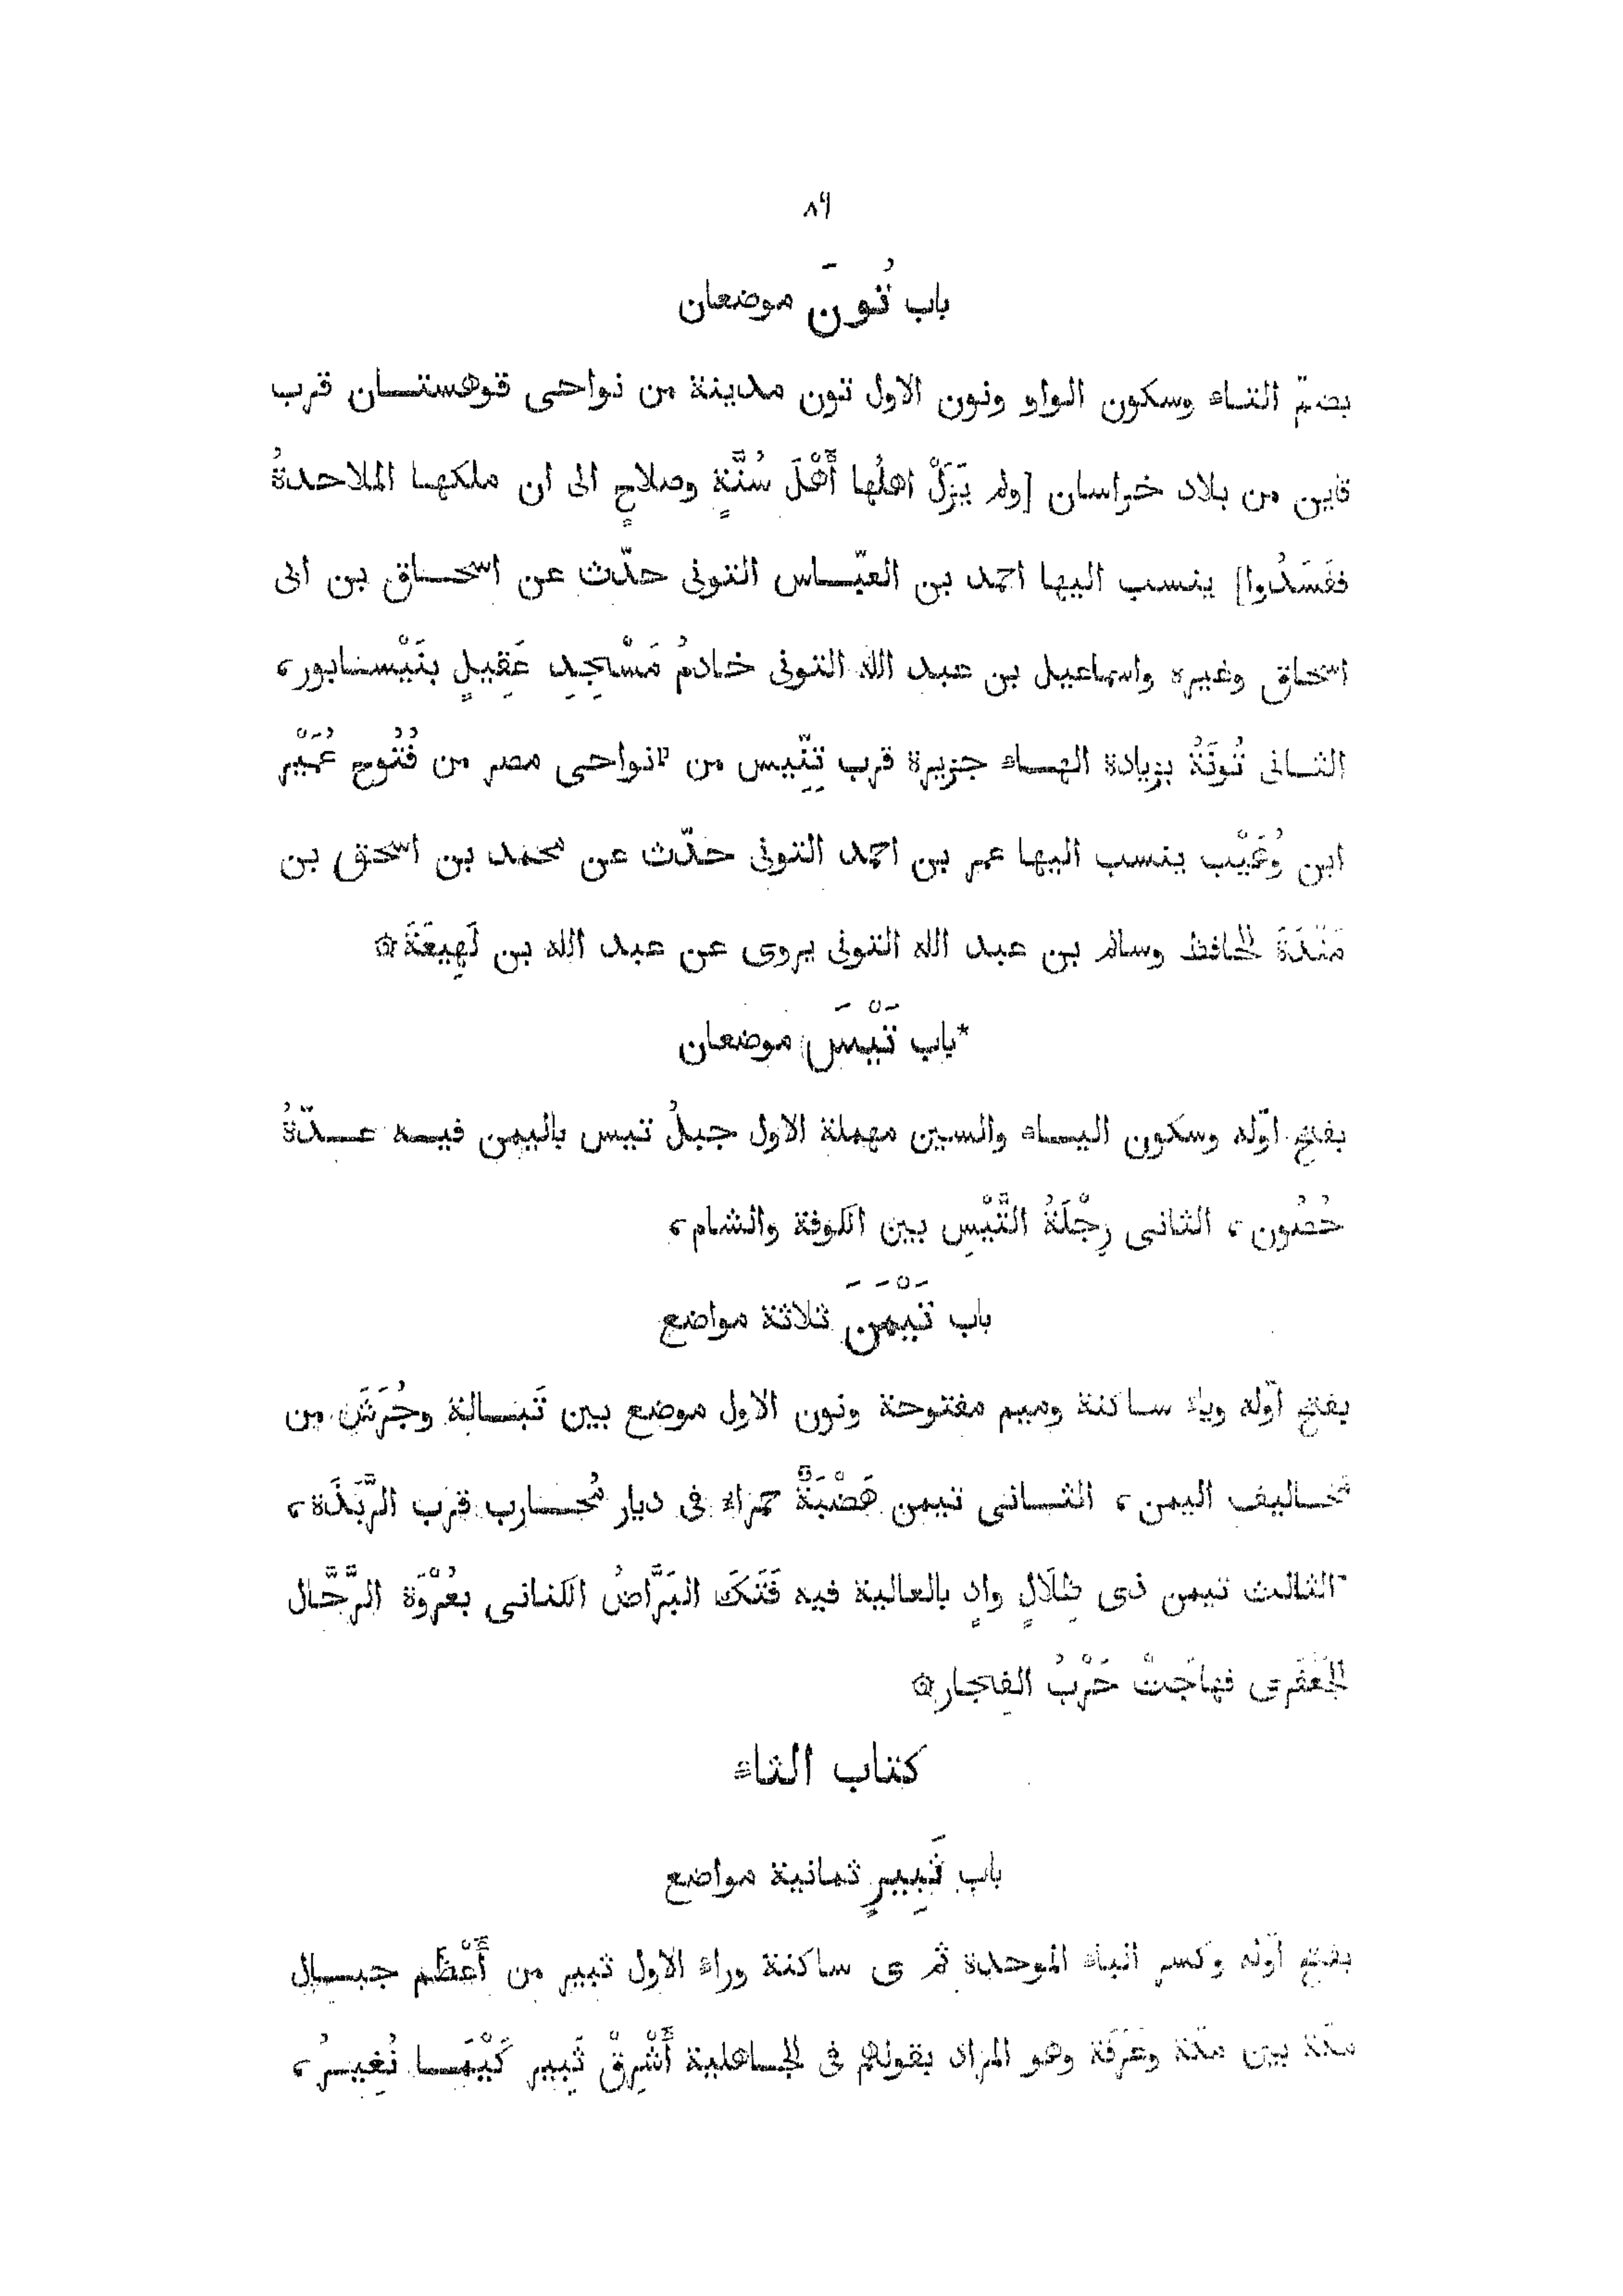 ٨٩
باب تُونَ موضعان
بضمّ التاء وسكون الواو ونون الاول تون مدينة من نواحى قوهستان قرب
قاين من بلاد خراسان [ولم يَزَلْ اهلُها أَهْلَ سُنَّةٍ وصلاحٍ الى ان ملكها الملاحدةُ
ففَسَدُوا] ينسب اليها احمد بن العبّاس التونى حدّث عن اسحاق بن ابى
اسحاق وغيره واسماعيل بن عبد الله التونى خادمُ مَسْجِدِ عَقِيلٍ بنَيْسابور،
الثانى تُونَةُ بزيادة الهاء جزيرة قرب تِنِّيس من نواحى مصر من فُتُوح عُمَيْر
ابن وُهَيْب ينسب اليها عمر بن احمد التونى حدّث عن محمد بن اسحق بن
مَنْدَةَ الحافظ وسالم بن عبد الله التونى يروى عن عبد الله بن لَهِيعَةَ۞
*باب تَيْسَ موضعان
بفتح اوّله وسكون الياء والسين مهملة الاول جبلُ تيس باليمن فيه عدّةُ
حُصُون، الثانى رِجْلَةُ التَّيْسِ بين الكوفة والشام،
باب تَيْمَنَ ثلاثة مواضع
بفتح اوّله وياء ساكنة وميم مفتوحة ونون الاول موضع بين تَبالة وجُرَشَ من
مخاليف اليمن، الثانى تيمن هَضْبَةٌ حمراء فى ديار مُحارب قرب الرَّبَذَة،
الثالث تيمن ذى ظِلَالٍ وادٍ بالعالية فيه فَتَكَ البَرَّاضُ الكنانى بعُرْوَة الرَّحَّال
الجَعْفَرى فهاجَتْ حَرْبُ الفِجار۞
كتاب الثاء
باب ثَبِيرٍ ثمانية مواضع
بفتح اوّله وكسر الباء الموحدة ثم ى ساكنة وراء الاول ثبير من أَعْظَم جبال
مكّة بين مكّة وعَرَفَة وهو المراد بقولهم فى الجاهلية أَشْرِقْ ثَبِير كَيْمَا نُغِيرُ،